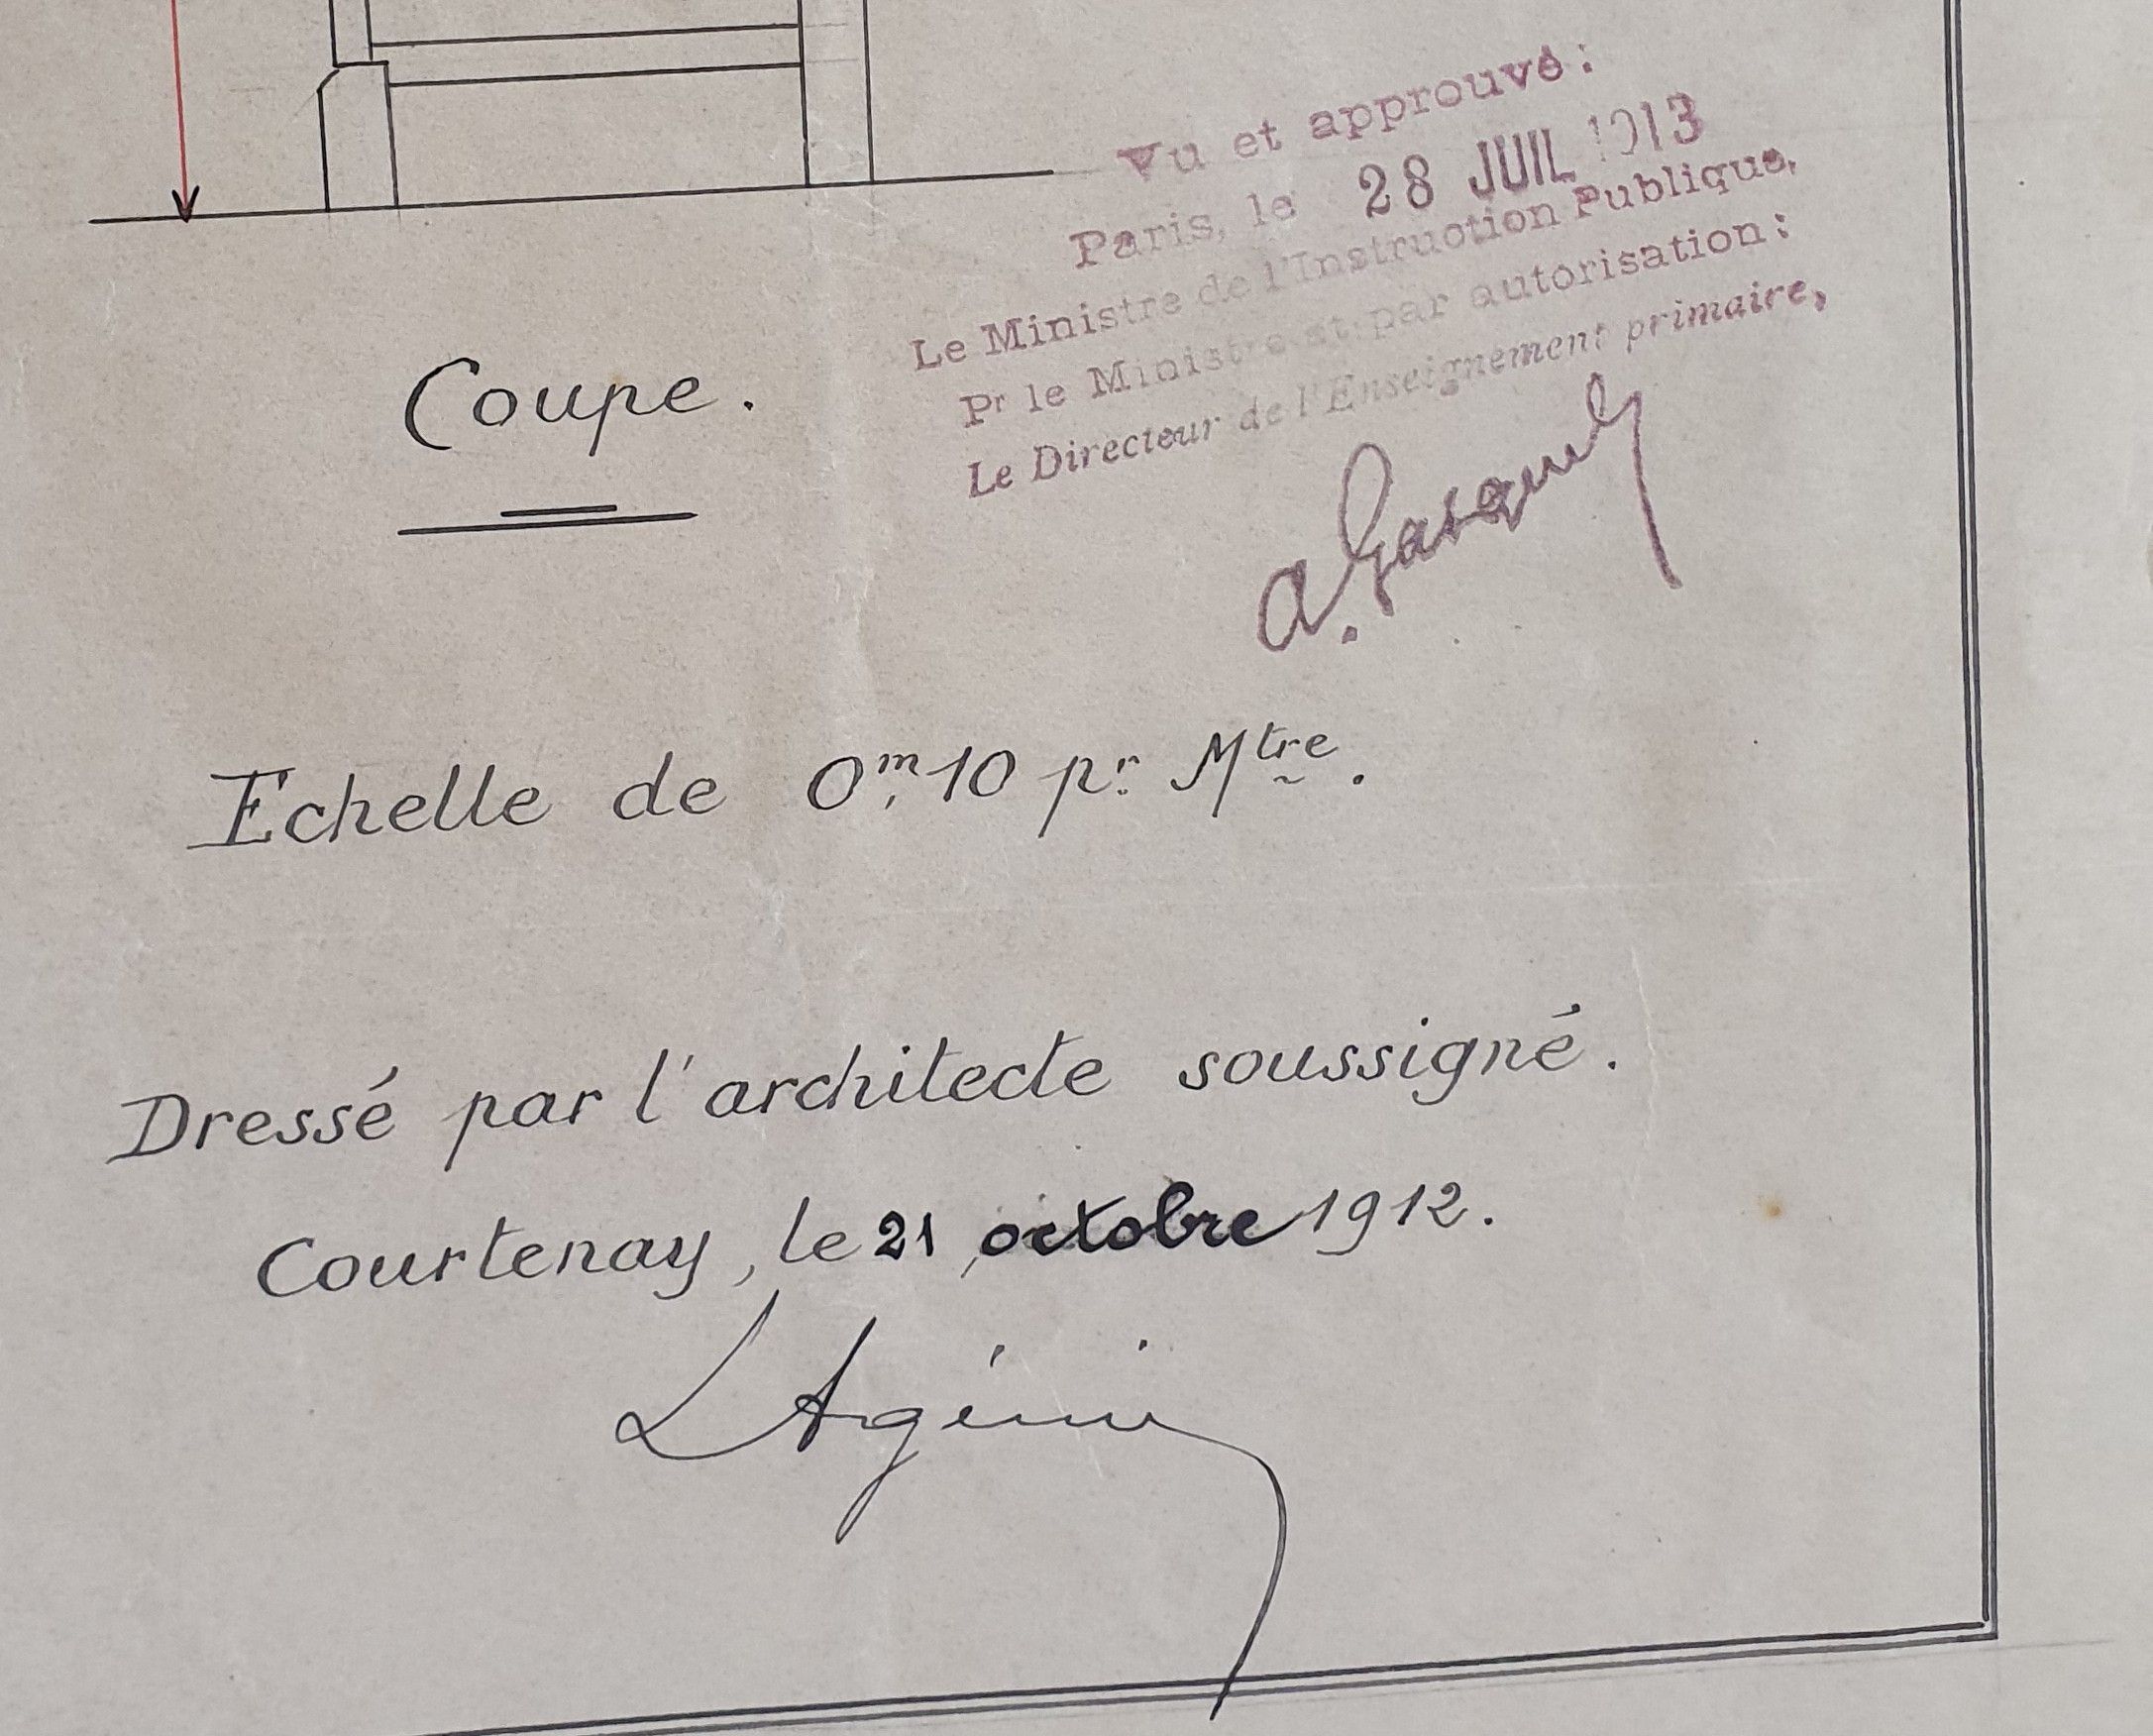 Vu et approuvé :
Paris, le 28 JUIL 1913
Le Ministre de l'Instruction Publique,
Pr le Ministre et par autorisation :
Le Directeur de l'Enseignement primaire,
a. Gasquet
Coupe.
Echelle de 0m,10 pr Mtre.
Dressé par l'architecte soussigné.
Courtenay, le 21 octobre 1912.